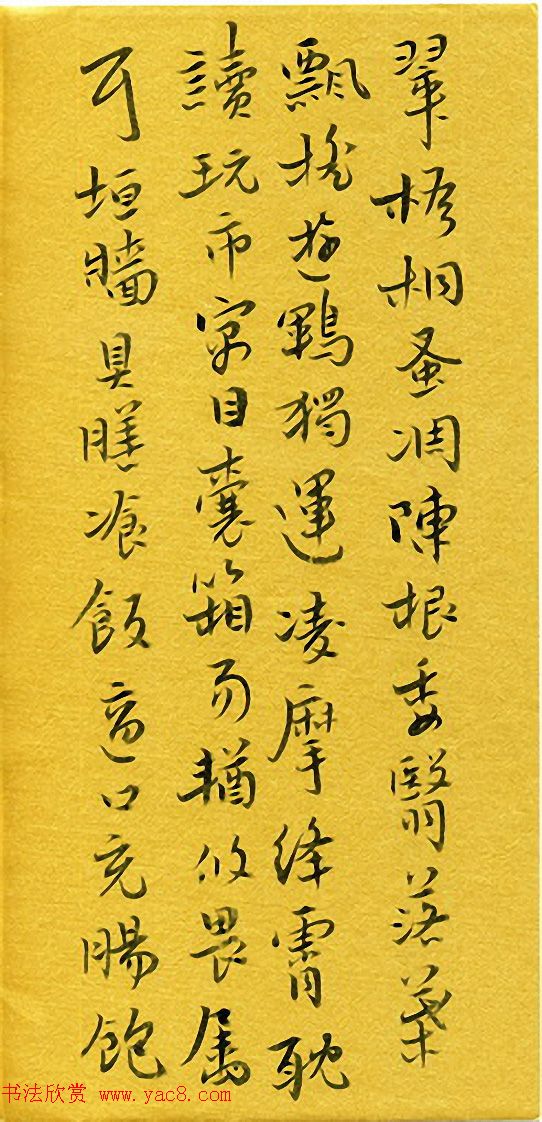 翠梧桐蚤凋陳根委翳落葉
飄搖遊鵾獨運凌摩絳霄耽
讀玩市寓目囊箱易輶攸畏属
耳垣牆具膳飡飯適口充腸飽
书法欣赏 www.yac8.com